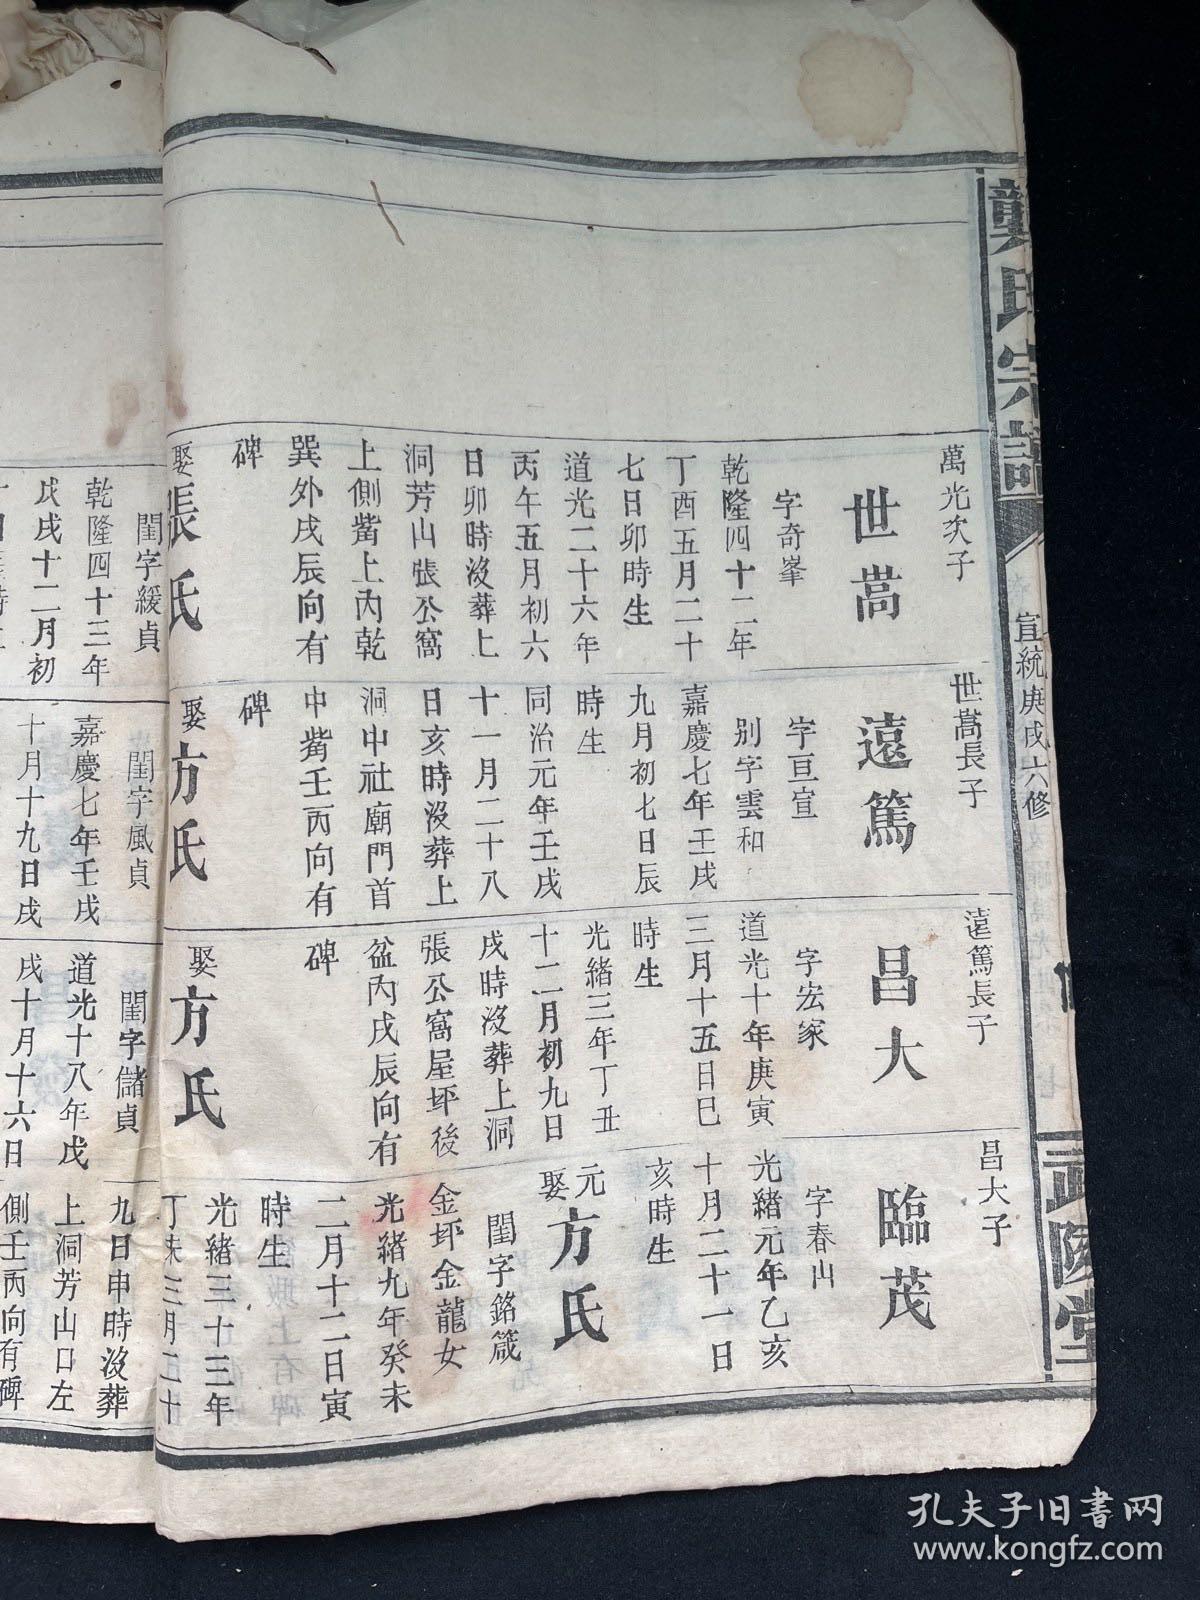 龔氏宗譜
宣統庚戌六修
武陵堂
萬光次子
世蒿
字奇峯
乾隆四十二年
丁酉五月二十
七日卯時生
道光二十六年
丙午五月初六
日卯時沒葬上
洞芳山張公窩
上側嘴上丙乾
巽外戌辰向有
碑
娶張氏
閨字緩貞
乾隆四十三年
戊戌十二月初
世蒿長子
遠篤
字亘宣
别字雲和
嘉慶七年壬戌
九月初七日辰
時生
同治元年壬戌
十一月二十八
日亥時沒葬上
洞中社廟門首
中嘴壬丙向有
碑
娶方氏
閨字風貞
嘉慶七年壬戌
十月十九日戌
遠篤長子
昌大
字宏家
道光十年庚寅
三月十五日巳
時生
光緒三年丁丑
十二月初九日
戌時沒葬上洞
張公窩屋坪後
盆內戌辰向有
碑
娶方氏
閨字儲貞
道光十八年戊
戌十月十六日
昌大子
臨茂
字春山
光緒元年乙亥
十月二十一日
亥時生
元娶方氏
閨字銘箴
金坪金龍女
光緒九年癸未
二月十二日寅
時生
光緒三十三年
丁未三月二十
九日申時沒葬
上洞芳山口左
側壬丙向有碑
孔夫子旧书网
www.kongfz.com